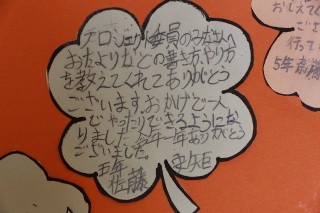 プロジェクト委員のみなさんへ
おたよりなどの書き方、やり方
を教えてくれてありがとう
ございます。おかげで一人
でやったりできるようにな
りました。今年一年ありがとう
ございました。
五年
佐藤
おしえてくれ
ござ
行って
5年